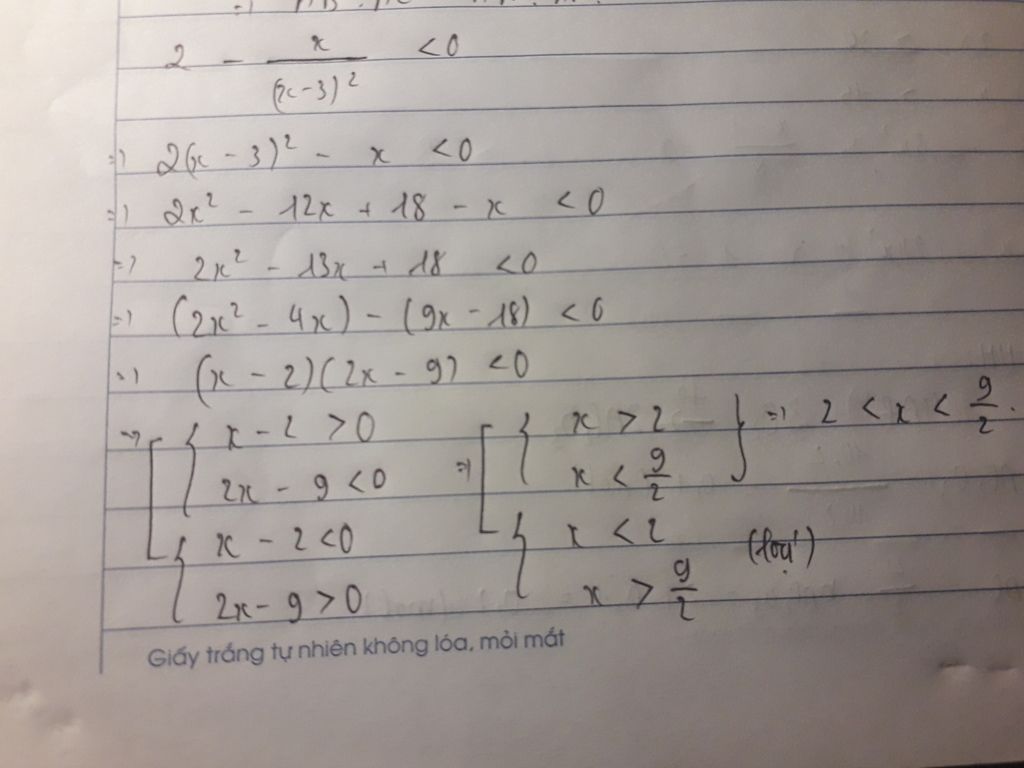 2 - x/(x-3)² < 0
=> 2(x - 3)² - x < 0
=> 2x² - 12x + 18 - x < 0
=> 2x² - 13x + 18 < 0
=> (2x² - 4x) - (9x - 18) < 0
=> (x - 2)(2x - 9) < 0
=> [ { x - 2 > 0 => [ { x > 2 } => 2 < x < 9/2.
2x - 9 < 0 x < 9/2
{ x - 2 < 0 { x < 2 (loại)
2x - 9 > 0 x > 9/2
Giấy trắng tự nhiên không lóa, mỏi mắt